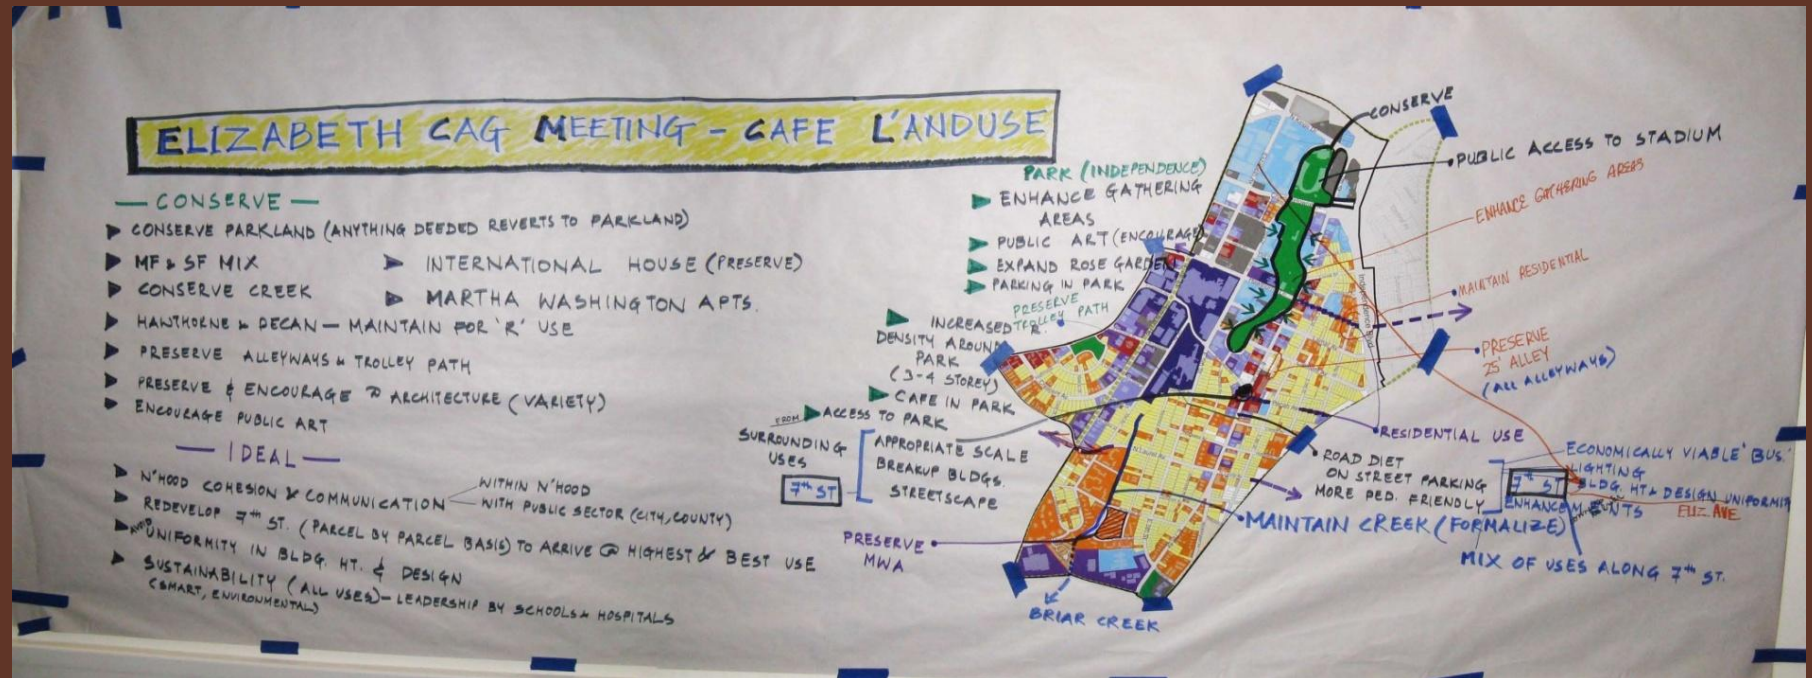 ELIZABETH CAG MEETING - CAFE L'ANDUSE
— CONSERVE —
CONSERVE PARKLAND (ANYTHING DEEDED REVERTS TO PARKLAND)
MF & SF MIX
INTERNATIONAL HOUSE (PRESERVE)
CONSERVE CREEK
MARTHA WASHINGTON APTS.
HAWTHORNE & DECAN — MAINTAIN FOR 'R' USE
PRESERVE ALLEYWAYS & TROLLEY PATH
PRESERVE & ENCOURAGE ARCHITECTURE (VARIETY)
ENCOURAGE PUBLIC ART
— IDEAL —
N'HOOD COHESION & COMMUNICATION
WITHIN N'HOOD
WITH PUBLIC SECTOR (CITY, COUNTY)
REDEVELOP 7th ST. (PARCEL BY PARCEL BASIS) TO ARRIVE @ HIGHEST & BEST USE
UNIFORMITY IN BLDG. HT. & DESIGN
SUSTAINABILITY (ALL USES) - LEADERSHIP BY SCHOOLS & HOSPITALS
(SMART, ENVIRONMENTAL)
PARK (INDEPENDENCE)
ENHANCE GATHERING
AREAS
PUBLIC ART (ENCOURAGE)
EXPAND ROSE GARDEN
PARKING IN PARK
PRESERVE
TROLLEY PATH
INCREASED R.
DENSITY AROUND
PARK
(3-4 STOREY)
CAFE IN PARK
ACCESS TO PARK
FROM
SURROUNDING
USES
7th ST
APPROPRIATE SCALE
BREAKUP BLDGS.
STREETSCAPE
PRESERVE
MWA
BRIAR CREEK
CONSERVE
PUBLIC ACCESS TO STADIUM
ENHANCE GATHERING AREAS
MAINTAIN RESIDENTIAL
Independence Blvd
PRESERVE
25' ALLEY
(ALL ALLEYWAYS)
RESIDENTIAL USE
ROAD DIET
ON STREET PARKING
MORE PED. FRIENDLY
MAINTAIN CREEK (FORMALIZE)
7th ST
ECONOMICALLY VIABLE BUS.
LIGHTING
BLDG. HT & DESIGN UNIFORMITY
ENHANCEMENTS
ELIZ AVE
MIX OF USES ALONG 7th ST.